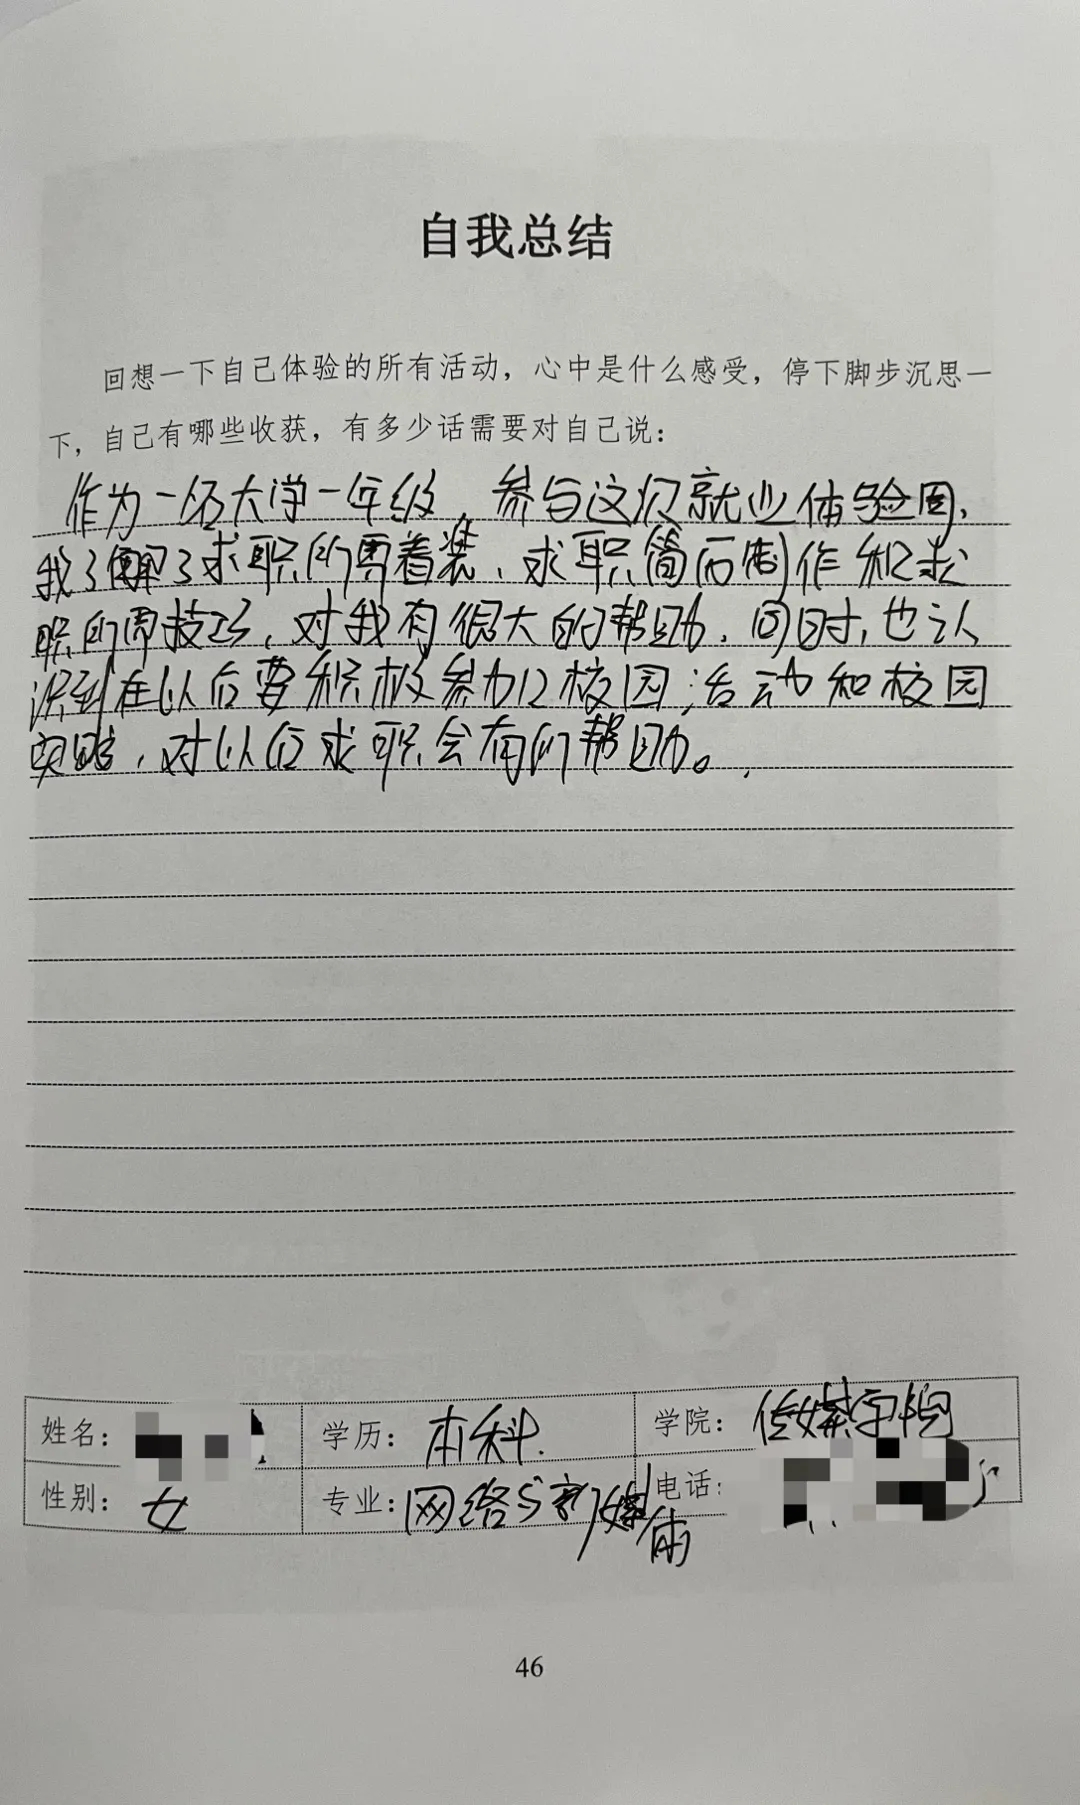 自我总结
回想一下自己体验的所有活动，心中是什么感受，停下脚步沉思一
下，自己有哪些收获，有多少话需要对自己说：
作为一名大学一年级，参与这次就业体验周，
我了解了求职所需着装、求职简历制作和求
职所需技巧，对我有很大的帮助，同时，也认
识到在以后要积极参加校园活动和校园
实践，对以后求职会有所帮助。
姓名： 学历：本科 学院：传媒学院
性别：女 专业：网络与新媒体 电话：
46